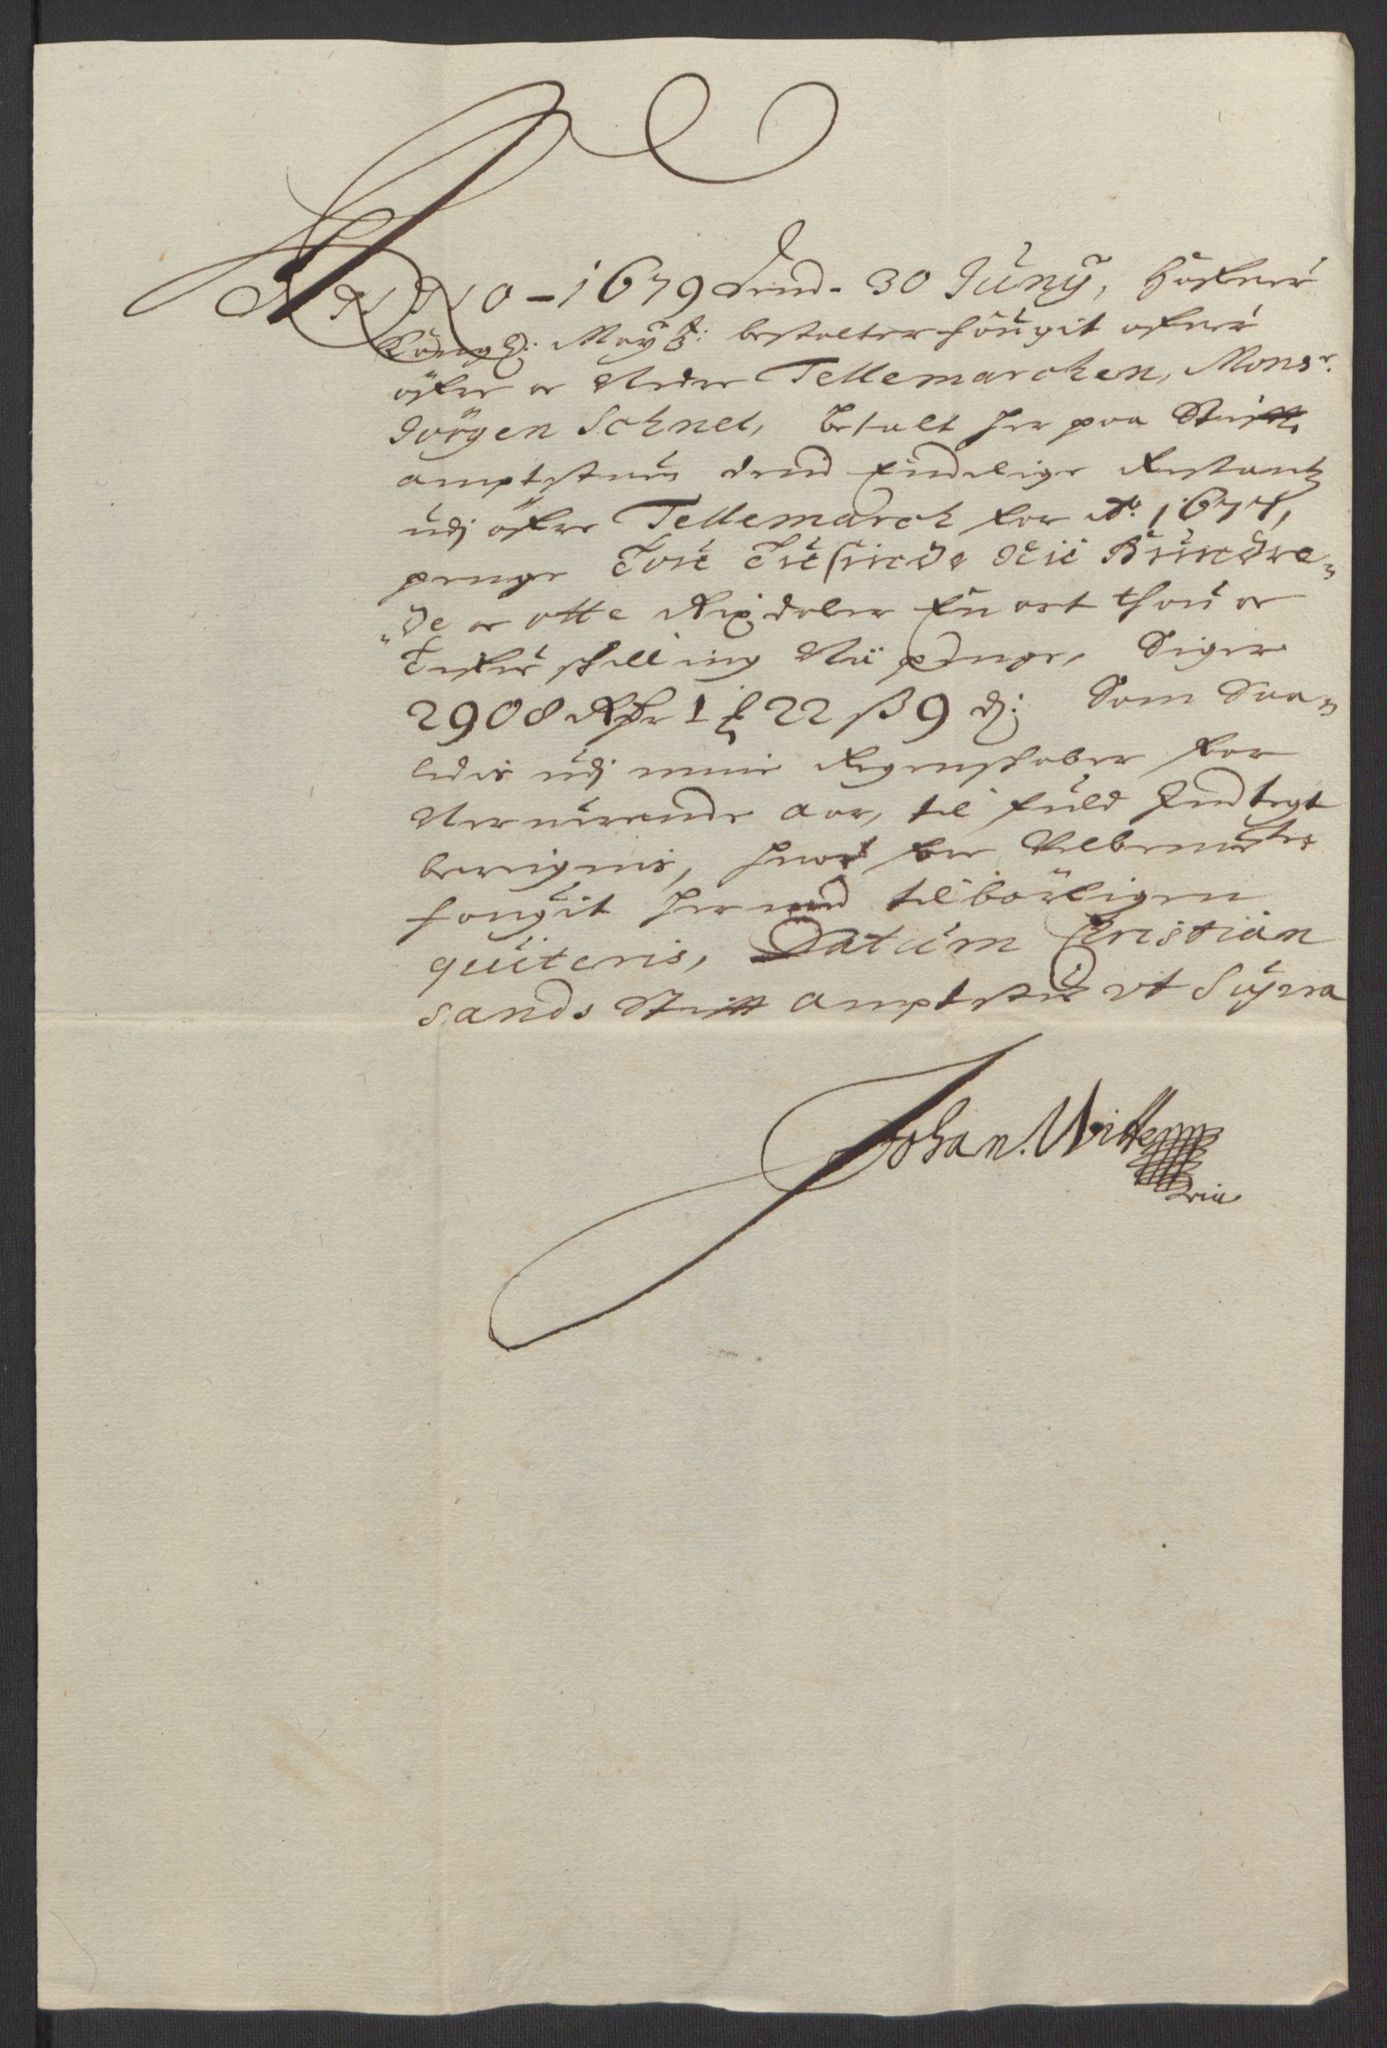 ANNO - 1679 dend. 30 Juny, Hafuer
Kong: May: bestalter fougit ofuer
öfre oc Neder Tellemarcken, Mons.r
Jörgen Schnel, betalt her paa Stifft
amptstuen dend Endelige Restantz
udj öfre Tellemarck for Ao. 1677,
penge Toü Tüsinde Nü Hündre„
„de oc otte Rixdaler En ort thou oc
Tiufue schilling Nü penge, Siger
2908 Rdr 1 ℔ 22 ß 9 d: Som Saa„
ledis udj mine Regenskaber for
Neruerende Aar, til fuld Indtegt
beregnis, huor for Velbemelte
fougit her med tilbörligen
quiteris, Datum Christian
sands Stifft amptstue ut Supra
Johan. Witte